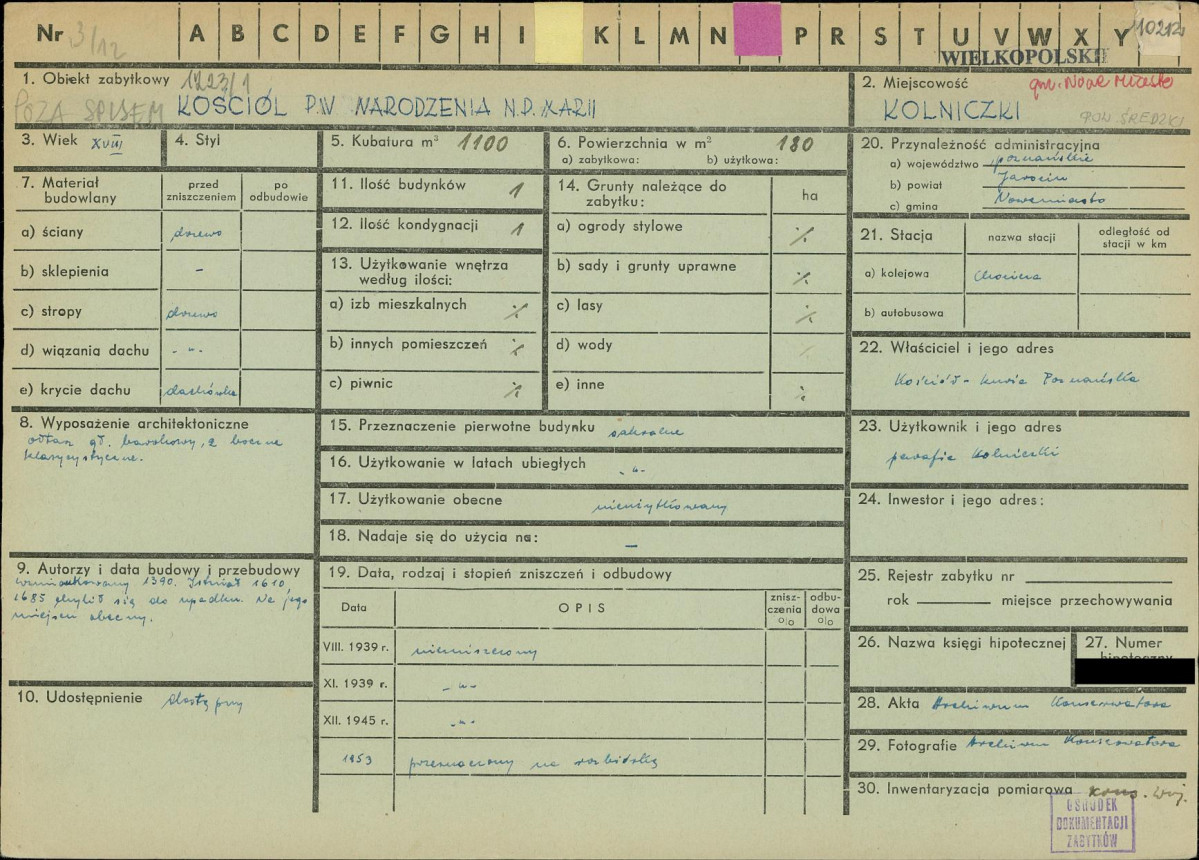 Nr 3/12 A B C D E F G H I K L M N P R S T U V W X Y 10212
WIELKOPOLSKIE
1. Obiekt zabytkowy 1223/1
POZA SPISEM KOŚCIÓŁ P.W. NARODZENIA N.P. MARII
2. Miejscowość gm. Nowe Miasto
KOLNICZKI POW ŚREDZKI
3. Wiek XVIII
4. Styl
5. Kubatura m³ 1100
6. Powierzchnia w m² 180
a) zabytkowa: b) użytkowa:
7. Materiał budowlany
przed zniszczeniem
po odbudowie
a) ściany drzewo
b) sklepienia –
c) stropy drzewo
d) wiązania dachu -"-
e) krycie dachu dachówka
8. Wyposażenie architektoniczne
ołtarz gł. barokowy, 2 boczne
klasycystyczne.
9. Autorzy i data budowy i przebudowy
wzmiankowany 1390. Istniał 1610,
1685 chylił się do upadku. Na jego
miejscu obecny.
10. Udostępnienie dostępny
11. Ilość budynków 1
12. Ilość kondygnacji 1
13. Użytkowanie wnętrza
według ilości:
a) izb mieszkalnych ·/.
b) innych pomieszczeń ·/.
c) piwnic ·/.
14. Grunty należące do
zabytku:
ha
a) ogrody stylowe ·/.
b) sady i grunty uprawne ·/.
c) lasy ·/.
d) wody ·/.
e) inne ·/.
15. Przeznaczenie pierwotne budynku sakralne
16. Użytkowanie w latach ubiegłych -"-
17. Użytkowanie obecne nieużytkowany
18. Nadaje się do użycia na: –
19. Data, rodzaj i stopień zniszczeń i odbudowy
Data
OPIS
znisz-czenia %
odbu-dowa %
VIII. 1939 r. niezniszczony
XI. 1939 r. -"-
XII. 1945 r. -"-
1953 przeznaczony na rozbiórkę
20. Przynależność administracyjna
a) województwo poznańskie
b) powiat Jarocin
c) gmina Nowemiasto
21. Stacja
nazwa stacji
odległość od stacji w km
a) kolejowa Chocicza
b) autobusowa
22. Właściciel i jego adres
Kościół - kuria Poznańska
23. Użytkownik i jego adres
parafia Kolniczki
24. Inwestor i jego adres:
25. Rejestr zabytku nr
rok miejsce przechowywania
26. Nazwa księgi hipotecznej
27. Numer
hipoteczny
28. Akta Archiwum Konserwatora
29. Fotografie Archiwum Konserwatora
30. Inwentaryzacja pomiarowa kons. woj.
OŚRODEK
DOKUMENTACJI
ZABYTKÓW